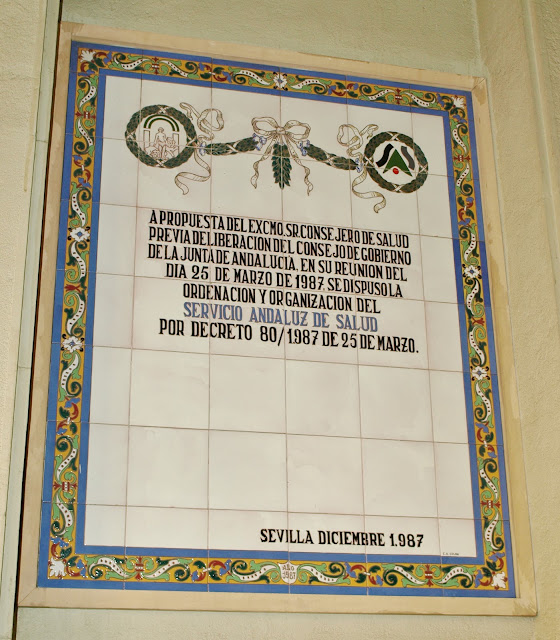 A PROPUESTA DEL EXCMO. SR. CONSEJERO DE SALUD
PREVIA DELIBERACION DEL CONSEJO DE GOBIERNO
DE LA JUNTA DE ANDALUCIA, EN SU REUNION DEL
DIA 25 DE MARZO DE 1987, SE DISPUSO LA
ORDENACION Y ORGANIZACION DEL
SERVICIO ANDALUZ DE SALUD
POR DECRETO 80/1987 DE 25 DE MARZO.
SEVILLA DICIEMBRE 1.987
AÑO